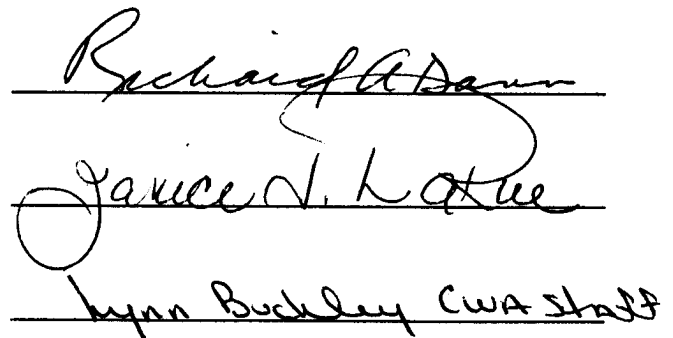 Richard A Dann
Janice J. LaRue
Lynn Buckley CWA Staff